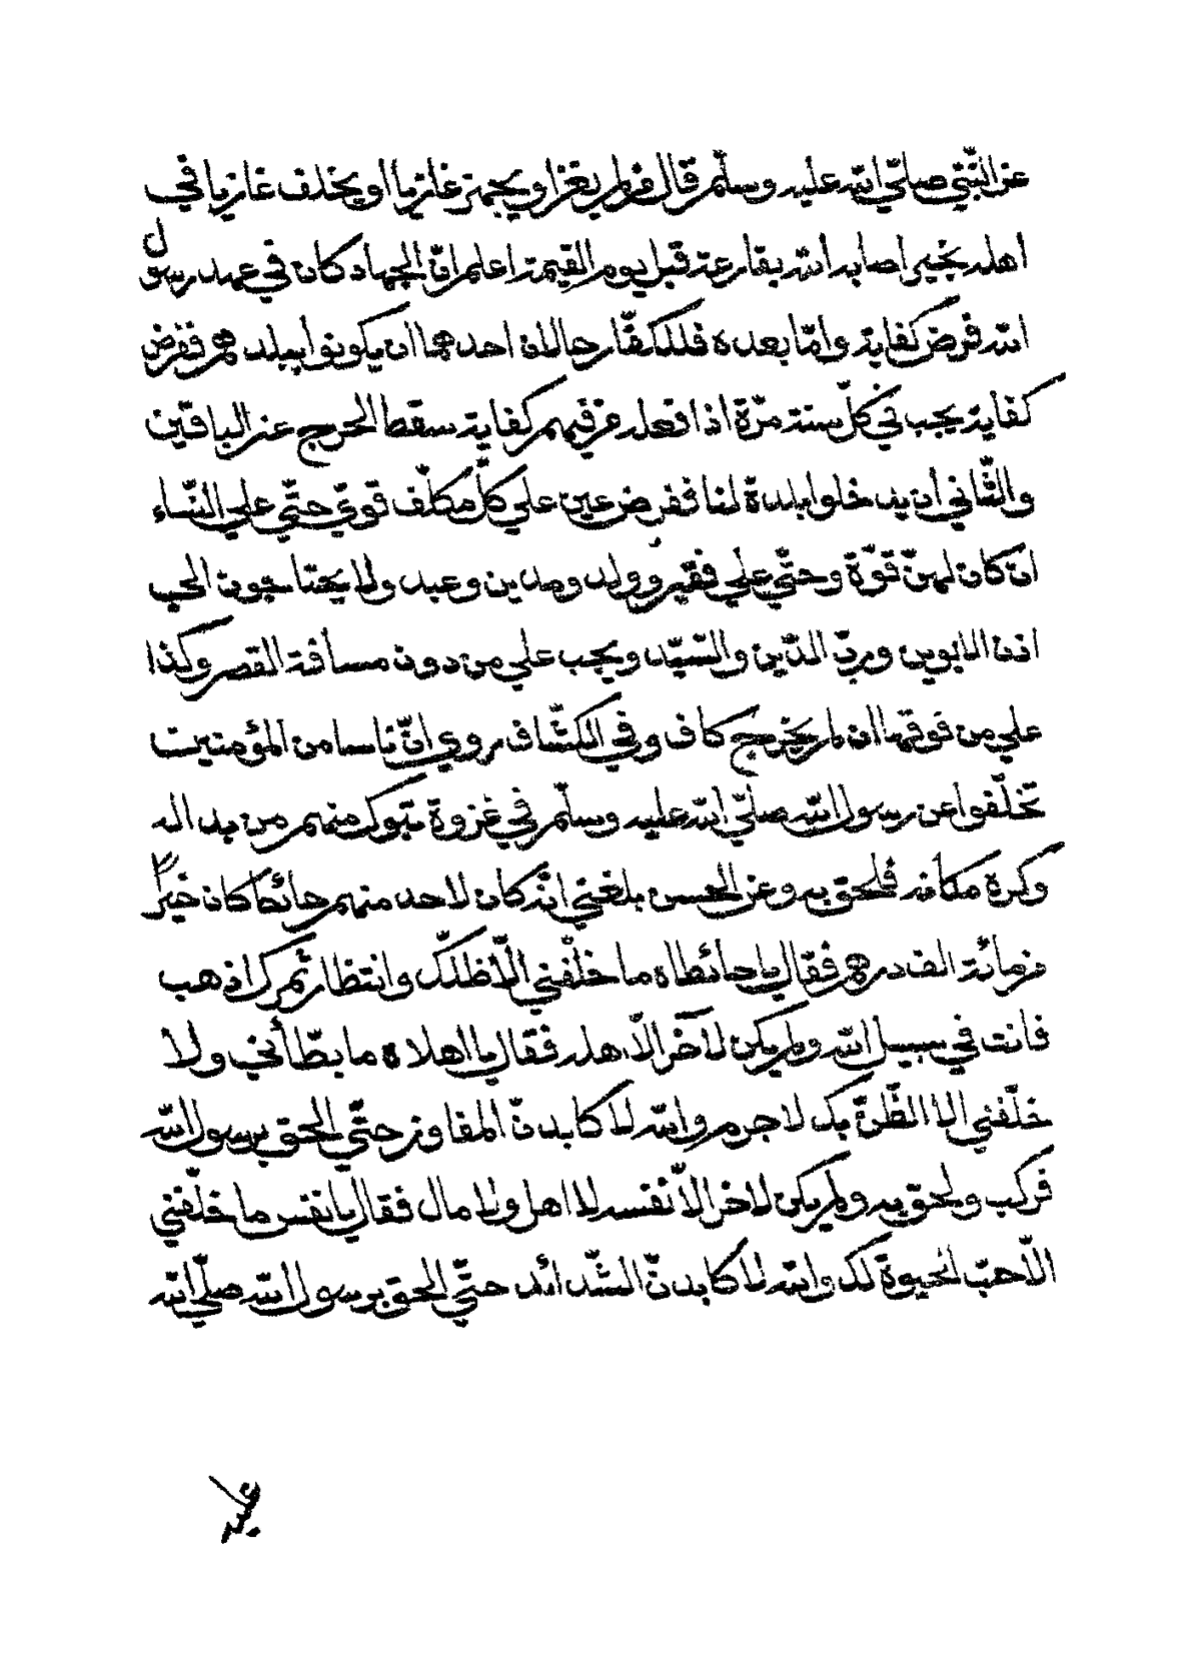 عن النّبيّ صلّي الله عليه وسلّم قال من لم يغزا ويجهز غازيا او يخلف غازيا في
اهله بخير اصابه الله بقارعة قبل يوم القيمة اعلم انّ الجهاد كان في عهد رسول
الله فرض كفاية وامّا بعده فللكفّار حالان احدهما ان يكونوا ببلدهم ففرض
كفاية يجب في كلّ سنة مرّة اذا فعله من فيهم كفاية سقط الحرج عن الباقين
والثّاني ان يدخلوا بلدة لنا ففرض عين علي كلّ مكلّف قويّ حتّي علي النّساء
ان كان لهنّ قوّة وحتّي علي فقير وولد ومدين وعبد ولا يحتاجون الي
اذن الابوين وربّ الدّين والسّيّد ويجب علي من دون مسافة القصر وكذا
علي من فوقها ان لم يخرج كاف وفي الكشّاف روي انّ ناسا من المؤمنين
تخلّفوا عن رسول الله صلّي الله عليه وسلّم في غزوة تبوك منهم من بدا له
وكره مكانه فلحق به وعن الحسن بلغني انّه كان لاحد منهم حائطا كان خيرًا
من مائة الف درهم فقال يا حائطاه ما خلّفني الّا ظلّك وانتظار ثمرك اذهب
فانت في سبيل الله ولم يكن لآخر الّا اهله فقال يا اهلاه ما بطّأني ولا
خلّفني الا الظّنّ بك لا جرم والله لاكابدنّ المفاوز حتّي الحق برسول الله
فركب ولحق به ولم يكن لاخر الّا نفسه لا اهل ولا مال فقال يا نفس ما خلّفني
الّا حبّ الحيوة لك والله لاكابدنّ الشّدائد حتّي الحق برسول الله صلّي الله
عليه